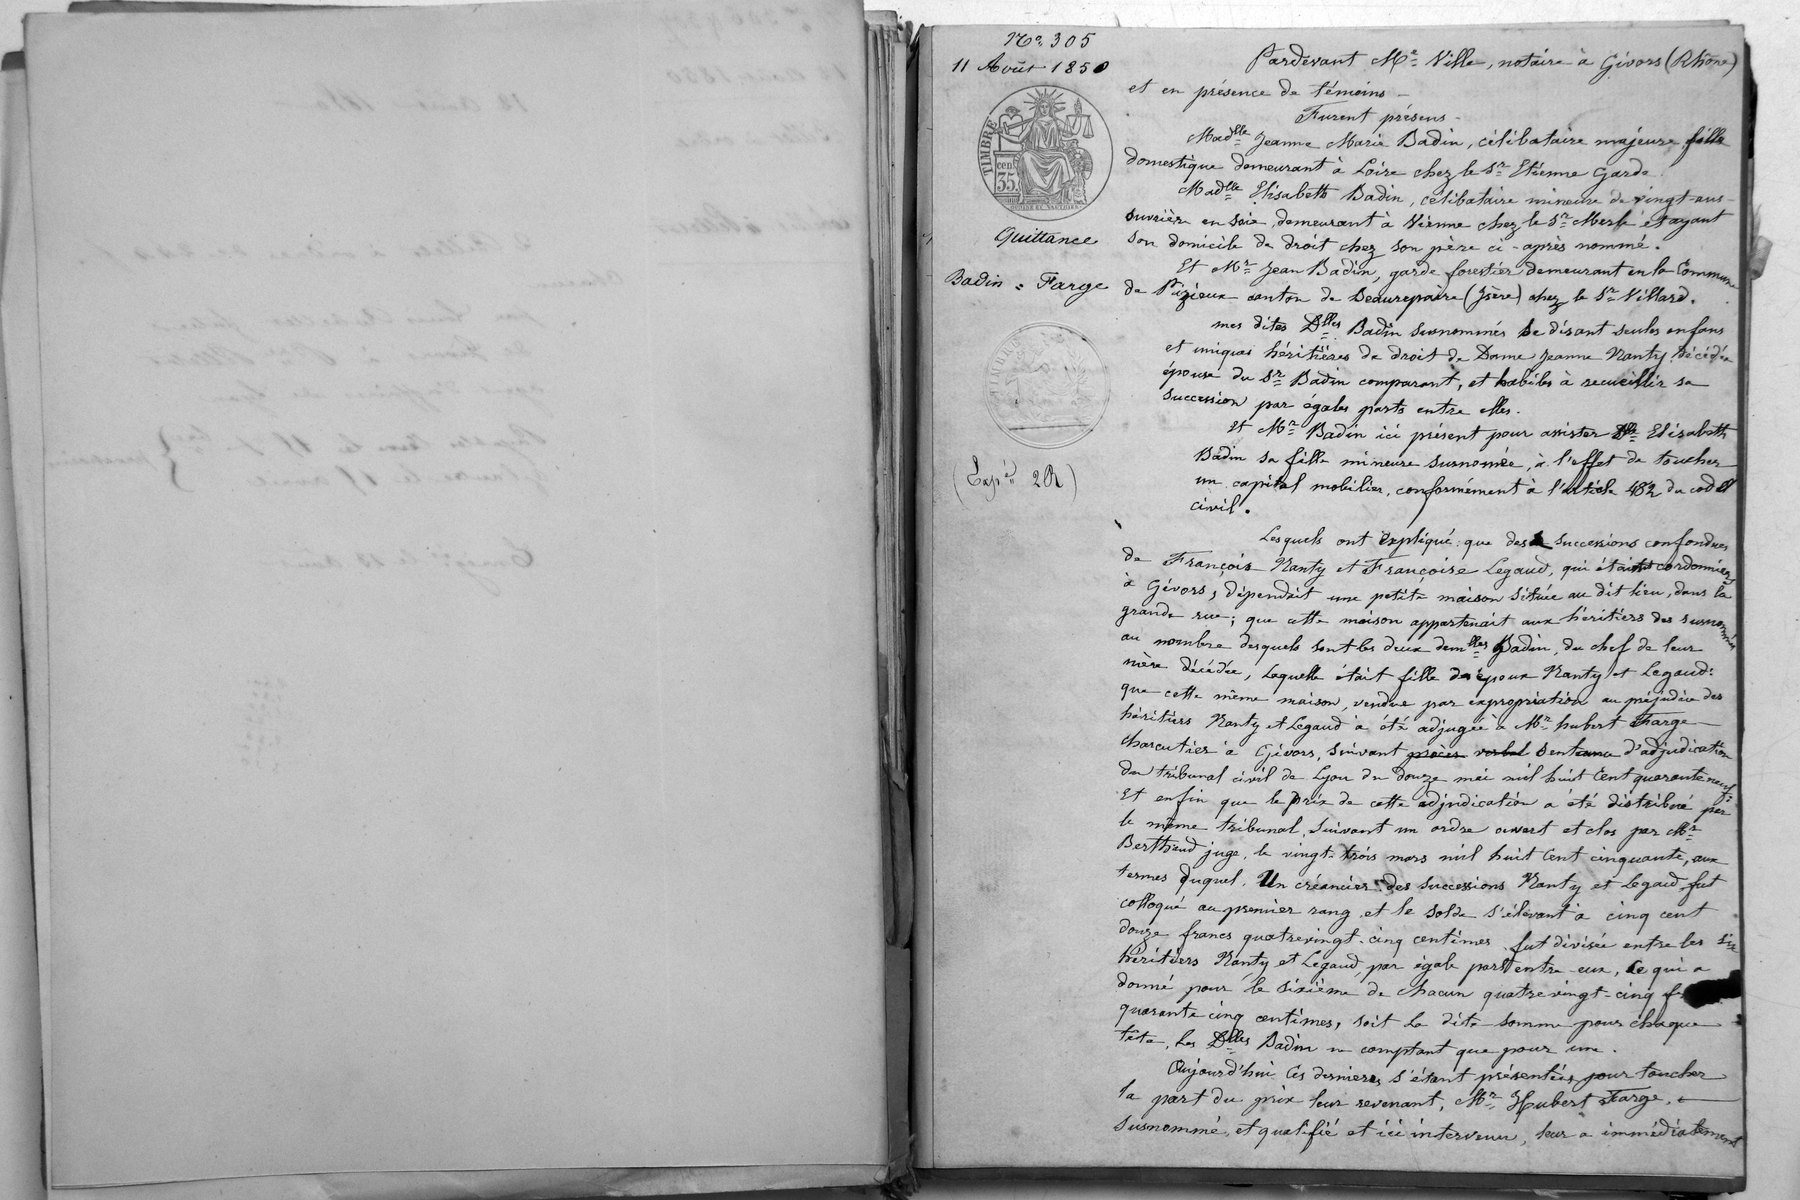 No. 305
11 Août 1850
TIMBRE
cen
35
Quittance
Badin = Farge
(Expé 2R)
Pardevant Me Ville, notaire à Givors (Rhône)
et en présence de témoins -
Furent présens -
Madlle Jeanne Marie Badin, célibataire majeure fille
domestique demeurant à Loire chez le Sr Etienne Garde.
Madlle Elisabeth Badin, célibataire mineure de vingt-ans -
ouvrière en soie, demeurant à Vienne chez le Sr Merle et ayant
son domicile de droit chez son père ci-après nommé.
Et Mr Jean Badin, garde forestier demeurant en la Commune
de canton de Beaurepaire (Isère) chez le Sr Villard.
mes dites Dlles Badin surnommés se disant seules enfans
et uniques héritières de droit de Dame Jeanne Nanty décédée
épouse du Sr Badin comparant, et habiles à recueillir sa
succession par égales parts entre elles.
Et Mr Badin ici présent pour assister Dlle Elisabeth
Badin sa fille mineure surnomée, à l'effet de toucher
un capital mobilier, conformément à l'article 482 du code
civil.
Lesquels ont expliqué : que des successions confondues
de François Nanty et Françoise Legaud, qui étaient cordonniers
à Givors, dépendait une petite maison située au dit lieu, dans la
grande rue ; que cette maison appartenait aux héritiers des susnommés
au nombre desquels sont les deux demlles Badin, du chef de leur
mère décédée, laquelle était fille des époux Nanty et Legaud :
que cette même maison, vendue par expropriation au préjudice des
héritiers Nanty et Legaud a été adjugée à Mr hubert Farge -
charcutier à Givors, suivant procès verbal sentence d'adjudication
du tribunal civil de Lyon du douze mai mil huit cent quarante neuf :
Et enfin que le prix de cette adjudication a été distribué par
le même tribunal, suivant un ordre ouvert et clos par Mr
Berthaud juge, le vingt-trois mars mil huit cent cinquante, aux
termes duquel. Un créancier des successions Nanty et Legaud fut
colloqué au premier rang et le solde s'élevant à cinq cent
douze francs quatrevingt-cinq centimes fut divisée entre les six
héritiers Nanty et Legaud par égale part entre eux, ce qui a
donné pour le sixième de chacun quatre vingt-cinq fr
quarante cinq centimes, soit la dite somme pour chaque
tête, les Dlles Badin ne comptant que pour une.
Aujourd'hui ces dernieres s'étant présentées pour toucher
la part du prix leur revenant, Mr Hubert Farge,
susnommé, et qualifié et ici intervenu, leur a immédiatement